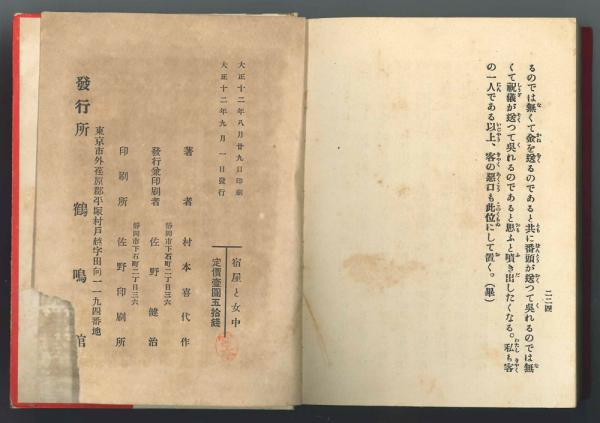 るのでは無くて金を送るのであると共に番頭が送つて呉れるのでは無
くて祝儀が送つて呉れるのであると思ふと噴き出したくなる。私も客
の一人である以上、客の惡口も此位にして置く。(畢)
二二四
大正十二年八月廿九日印刷
大正十二年九月一日發行
宿屋と女中
定價壹圓五拾錢
著者 村本喜代作
靜岡市下石町二丁目三六
發行兼印刷者 佐野健治
靜岡市下石町二丁目三六
印刷所 佐野印刷所
東京市外荏原郡平塚村戸越字田向一一九四番地
發行所 鶴鳴館